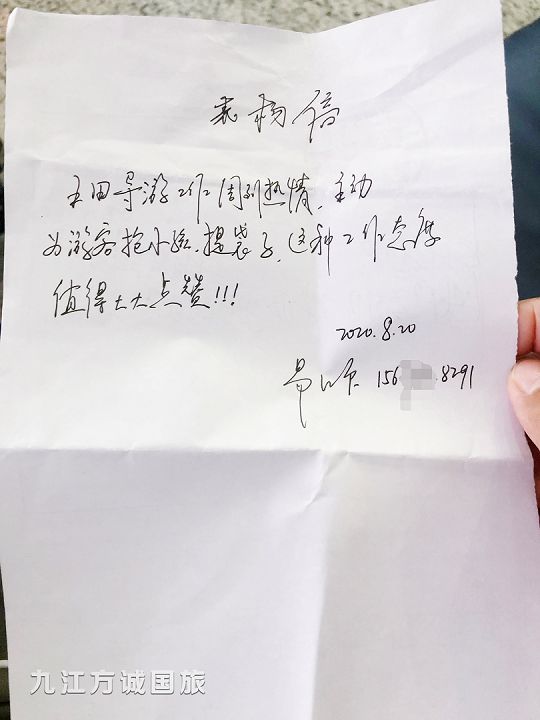 表扬信
王田导游工作周到热情，主动
为游客抱小孩，提袋子，这种工作态度
值得大大点赞!!!
2020.8.20
156 8291
九江方诚国旅